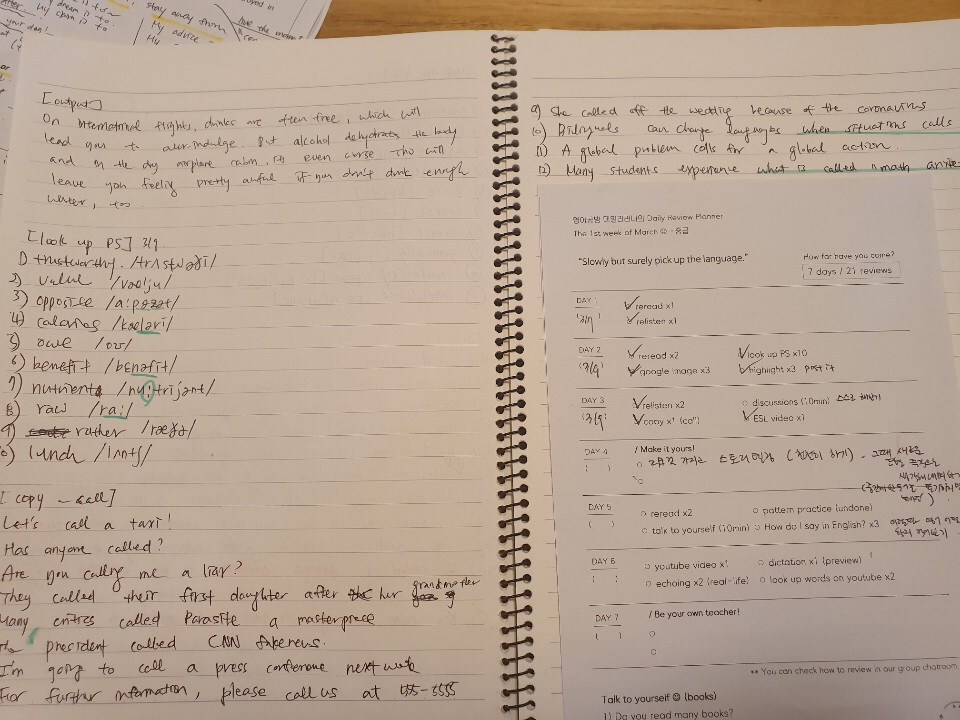 [output]
On international flights, drinks are often free, which will
lead you to over-indulge. But alcohol dehydrates the body
and in the dry airplane cabin, it's even worse. This will
leave you feeling pretty awful if you don't drink enough
water, too
[look up PS] 3/9
1) trustworthy
2) value /væ:lju/
3) opposite
4) calories
5) owe /oʊ/
6) benefit /benəfit/
7) nutrients
8) raw /ra:/
9) rather /ræðə/
10) lunch /lʌntʃ/
[copy - call]
Let's call a taxi!
Has anyone called?
Are you calling me a liar?
They called their first daughter after her grandmother
Many critics called Parasite a masterpiece
The president called CNN fakenews.
I'm going to call a press conference next week
For further information, please call us at 555-5555
9) She called off the wedding because of the coronavirus
10) Bilinguals can change languages when situations calls
11) A global problem calls for a global action.
12) Many students experience what is called "math
Daily Review Planner
The 1st week of March ☺ - 중급
"Slowly but surely pick up the language."
How far have you come?
7 days / 21 reviews
DAY 1
(3/7)
reread x1
relisten x1
DAY 2
(3/9)
reread x2
look up PS x10
google image x3
highlight x3 post it
DAY 3
(3/9)
relisten x2
discussions (10min)
copy x1 (call)
ESL video x1
DAY 4
( )
/ Make it yours!
DAY 5
( )
reread x2
pattern practice (undone)
talk to yourself (10min)
How do I say in English? x3
DAY 6
( )
youtube video x1
dictation x1 (preview)
echoing x2 (real-life)
look up words on youtube x2
DAY 7
( )
/ Be your own teacher!
** You can check how to review in our group chatroom.
Talk to yourself ☺ (books)
1) Do you read many books?